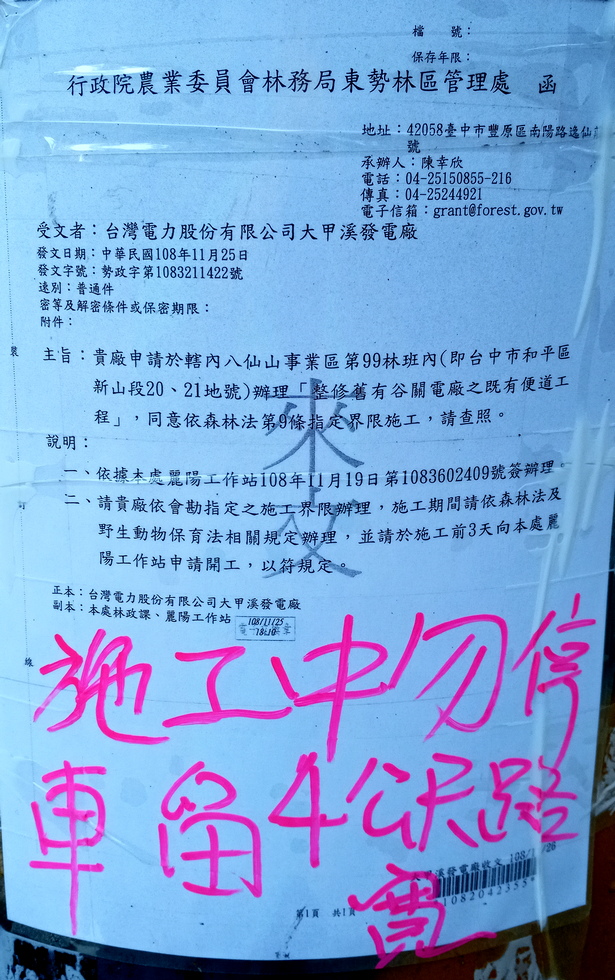 檔　號：
保存年限：
行政院農業委員會林務局東勢林區管理處　函
地址：42058臺中市豐原區南陽路逸仙
號
承辦人：陳幸欣
電話：04-25150855-216
傳真：04-25244921
電子信箱：grant@forest.gov.tw
受文者：台灣電力股份有限公司大甲溪發電廠
發文日期：中華民國108年11月25日
發文字號：勢政字第1083211422號
速別：普通件
密等及解密條件或保密期限：
附件：
主旨：貴廠申請於轄內八仙山事業區第99林班內(即台中市和平區
新山段20、21地號)辦理「整修舊有谷關電廠之既有便道工
程」，同意依森林法第9條指定界限施工，請查照。
說明：
一、依據本處麗陽工作站108年11月19日第1083602409號簽辦理。
二、請貴廠依會勘指定之施工界限辦理，施工期間請依森林法及
野生動物保育法相關規定辦理，並請於施工前3天向本處麗
陽工作站申請開工，以符規定。
來文
裝
訂
線
正本：台灣電力股份有限公司大甲溪發電廠
副本：本處林政課、麗陽工作站
108/11/25
施工中勿停
車留4公尺路
寬
大甲溪發電廠收文 108/
第1頁　共1頁